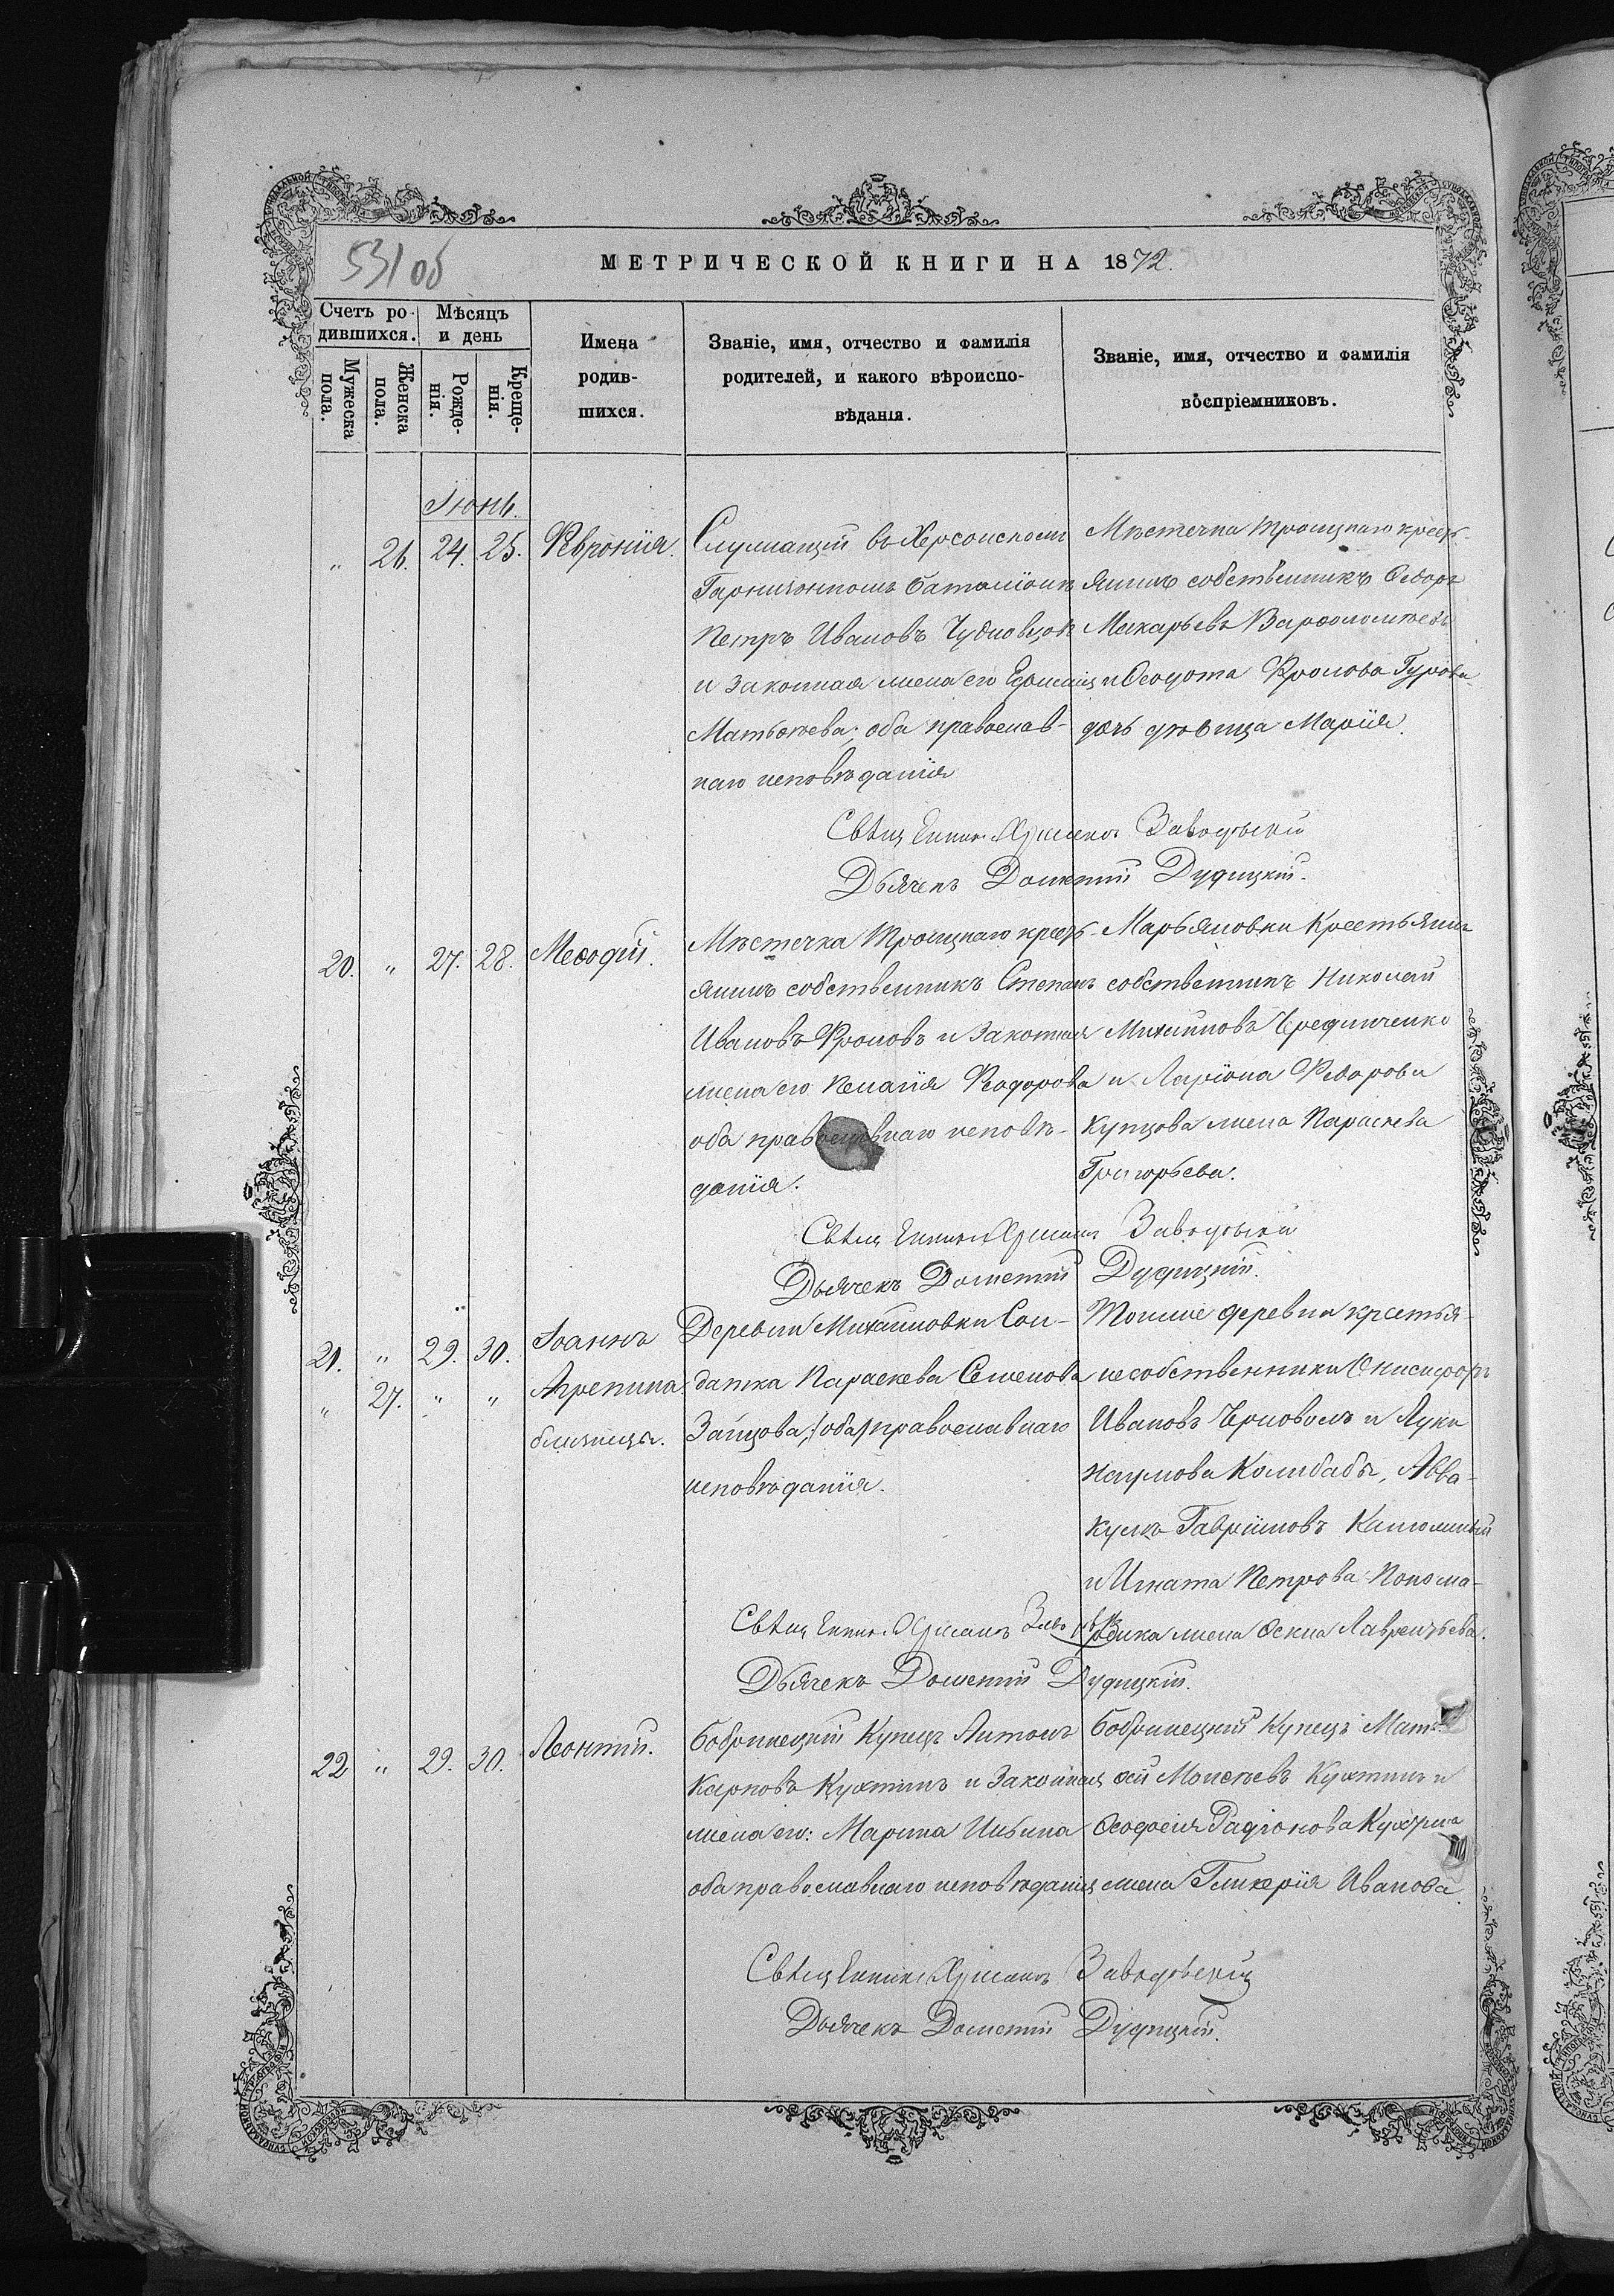 531 об
МЕТРИЧЕСКОЙ КНИГИ НА 1872.
Счетъ ро-
дившихся.
Мѣсяцъ
и день
Мужеска
пола.
Женска
пола.
Рожде-
нія.
Креще-
нія.
Имена
родив-
шихся.
Званіе, имя, отчество и фамилія
родителей, и какого вѣроиспо-
вѣданія.
Званіе, имя, отчество и фамилія
воспріемниковъ.
Іюнь.
" 26. 24. 25. Февронія.
Служащій въ Херсонскомъ
Гарнизонномъ баталіонѣ
Петръ Ивановъ Чудновцовъ
и законная жена его
Матвѣева; оба православ-
наго исповѣданія
Мѣстечка Троицкаго крест-
янинъ собственникъ Ѳедоръ
Макарьевъ Варѳоломѣевъ
и Ѳеодота Фролова Гурова
дочь дѣвица Марія.
Свящ Заводовскій
Дьячекъ Дометій Дудицкій.
20. " 27. 28. Меѳодій.
Мѣстечка Троицкаго крест-
янинъ собственникъ Степанъ
Ивановъ Фроловъ и Законная
жена его Пелагія Феодорова
оба православнаго исповѣ-
данія.
Марьяновки Крестьянинъ
собственникъ Николай
Михаиловъ Чередниченко
и Ларіона Федорова
Купцова жена Параскева
Григорьева.
Свящ Заводовскій
Дьячекъ Дометій Дудицкій.
21. " 29. 30. Іоаннъ
" 27. " " Агрепина
близнецы.
Деревни Михайловки Сол-
датка Параскева Семенова
Зайцова, /оба/ православнаго
исповѣданія.
Тоишже деревни крестья-
не собственники Онисифоръ
Ивановъ Чорноволъ и Луки
Наумова Колибабы, Авва-
кумъ Гавріиловъ
и Игната Петрова Понома-
ренка жена Ѳекла Лаврентьева.
Свящ
Дьячекъ Дометій Дудицкій.
22 " 29. 30. Леонтій.
Бобринецкій Купецъ Антонъ
Карповъ Кухтинъ и Законная
жена его: Марина Ильина
оба православнаго исповѣданія
Бобринецкій Купецъ Матв
ѳей Моисѣевъ Кухтинъ и
Ѳеодосія Радіонова
жена Гликерія Иванова.
Свящ Заводовскій
Дьячекъ Дометій Дудицкій.